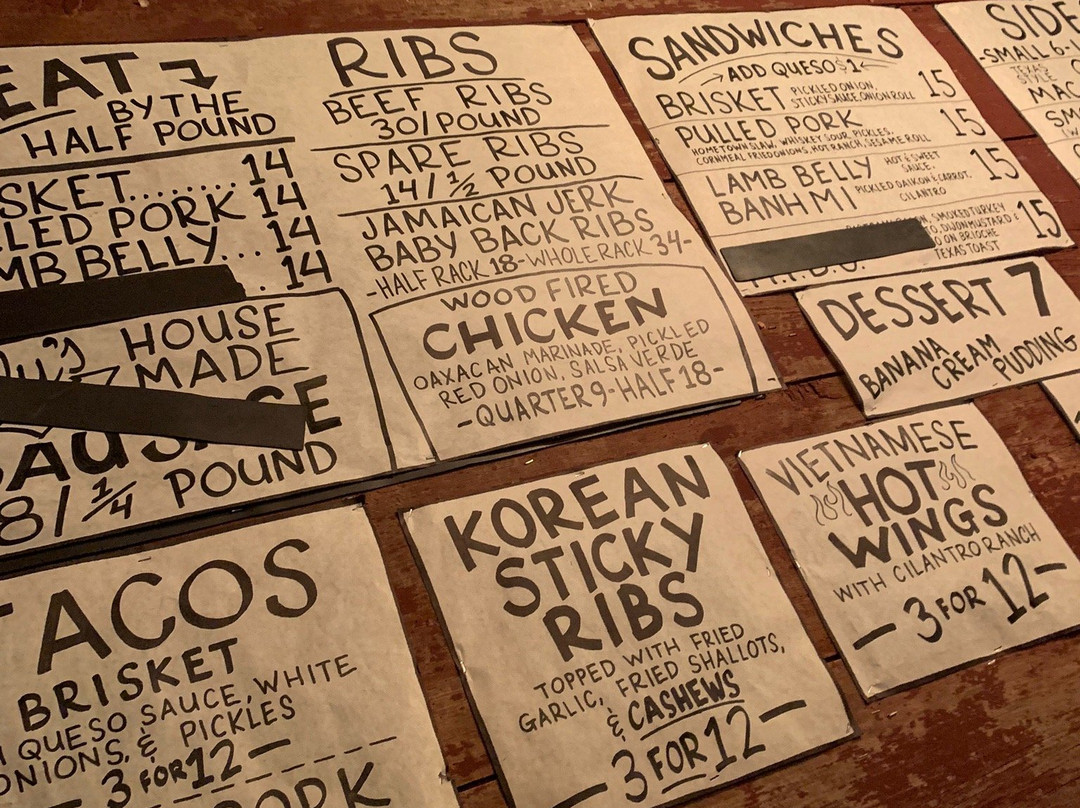 EAT
BY THE
HALF POUND
SKET........ 14
LED PORK 14
MB BELLY.... 14
. 14
HOUSE
MADE
8/ 1/4 POUND
RIBS
BEEF RIBS
30/POUND
SPARE RIBS
14/ 1/2 POUND
JAMAICAN JERK
BABY BACK RIBS
-HALF RACK 18-WHOLE RACK 34-
WOOD FIRED
CHICKEN
OAXACAN MARINADE, PICKLED
RED ONION, SALSA VERDE
-QUARTER 9-HALF 18-
SANDWICHES
ADD QUESO $1
BRISKET PICKLED ONION, 15
STICKY SAUCE, ONION ROLL
PULLED PORK 15
HOMETOWN SLAW, WHISKEY SOUR PICKLES,
CORNMEAL FRIED ONIONS, HOT RANCH, SESAME ROLL
LAMB BELLY HOT & SWEET 15
SAUCE,
BANH MI PICKLED DAIKON & CARROT,
CILANTRO
SMOKED TURKEY 15
DIJON MUSTARD &
ON BRIOCHE
TEXAS TOAST
SIDE
-SMALL 6-
TEXAS
STYLE
MAC
SM
DESSERT 7
BANANA
CREAM
PUDDING
TACOS
BRISKET
QUESO SAUCE, WHITE
ONIONS, & PICKLES
3 FOR 12 —
PORK
KOREAN
STICKY
RIBS
TOPPED WITH FRIED
GARLIC, FRIED SHALLOTS,
& CASHEWS
— 3 FOR 12 —
VIETNAMESE
HOT
WINGS
WITH CILANTRO RANCH
— 3 FOR 12 —